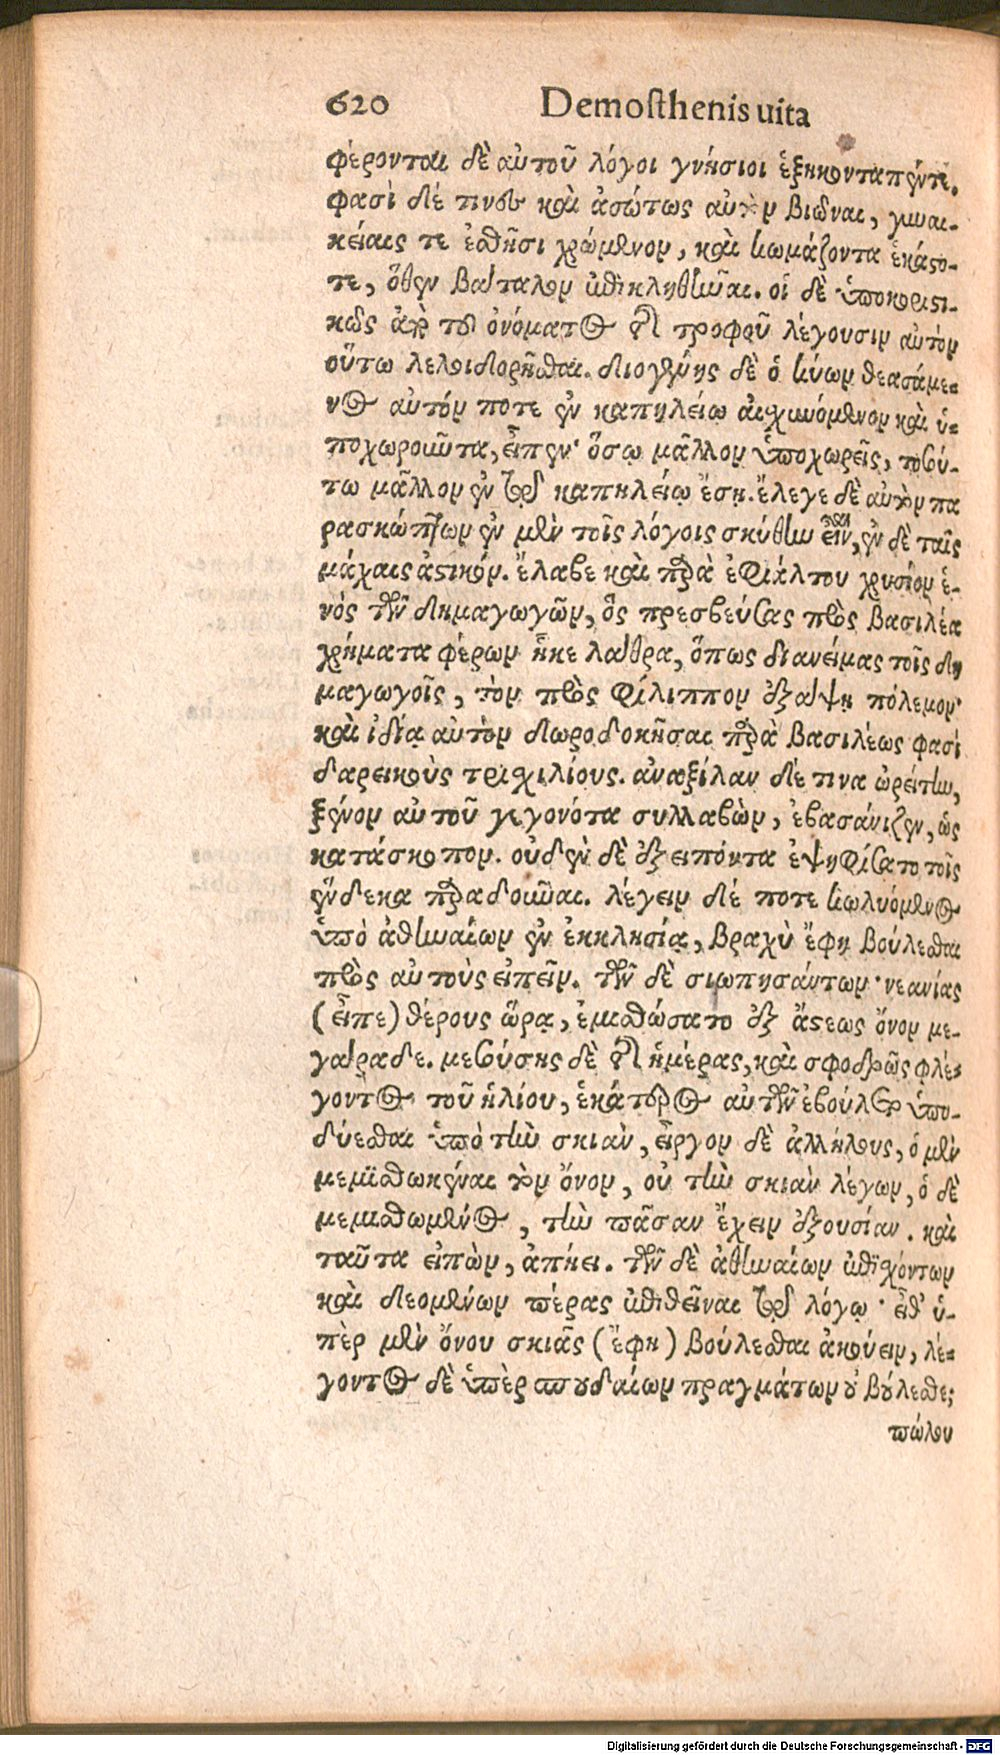 620 Demosthenis uita
φέρονται δὲ αὐτοῦ λόγοι γνήσιοι ἑξηκονταπέντε.
φασὶ δέ τινες καὶ ἀσώτως αὐτὸν βιῶναι, γυναι-
κείαις τε ἐσθῆσι χρώμενον, καὶ κωμάζοντα ἑκάστο-
τε, ὅθεν βάταλον ἐπικληθῆναι. οἱ δὲ ὑποκοριστι-
κῶς ἀπὸ τοῦ ὀνόματος τῆς τροφοῦ λέγουσιν αὐτὸν
οὕτω λελοιδορῆσθαι. διογένης δὲ ὁ κύων θεασάμε-
νος αὐτόν ποτε ἐν καπηλείῳ αἰσχυνόμενον καὶ ὑ-
ποχωροῦντα, εἶπεν· ὅσῳ μᾶλλον ὑποχωρεῖς, τοσού-
τω μᾶλλον ἐν τῷ καπηλείῳ ἔσῃ. ἔλεγε δὲ αὐτὸν πα
ρασκώπτων ἐν μὲν τοῖς λόγοις σκύθην εἶναι, ἐν δὲ ταῖς
μάχαις ἀστικόν. ἔλαβε καὶ παρὰ ἐφιάλτου χρυσίον ἑ-
νός τῶν δημαγωγῶν, ὃς πρεσβεύσας πρὸς βασιλέα
χρήματα φέρων ἧκε λάθρα, ὅπως διανείμας τοῖς δη
μαγωγοῖς, τὸν πρὸς φίλιππον ἐξάψῃ πόλεμον·
καὶ ἰδίᾳ αὐτὸν δωροδοκῆσαι παρὰ βασιλέως φασὶ
δαρεικοὺς τρισχιλίους. ἀναξίλαν δέ τινα ὠρείτην,
ξένον αὐτοῦ γεγονότα συλλαβὼν, ἐβασάνιζεν, ὡς
κατάσκοπον. οὐδὲν δὲ ἐξειπόντα ἐψηφίσατο τοῖς
ἕνδεκα παραδοῦναι. λέγειν δέ ποτε κωλυόμενος
ὑπὸ ἀθηναίων ἐν ἐκκλησίᾳ, βραχὺ ἔφη βούλεσθαι
πρὸς αὐτοὺς εἰπεῖν. τῶν δὲ σιωπησάντων· νεανίας
(εἶπε) θέρους ὥρᾳ, ἐμισθώσατο ἐξ ἄστεως ὄνον με-
γαράδε. μεσούσης δὲ τῆς ἡμέρας, καὶ σφοδρῶς φλέ-
γοντος τοῦ ἡλίου, ἑκάτερος αὐτῶν ἐβούλετο ὑπο-
δύεσθαι ὑπὸ τὴν σκιὰν, εἶργον δὲ ἀλλήλους, ὁ μὲν
μεμισθωκέναι τὸν ὄνον, οὐ τὴν σκιὰν λέγων, ὁ δὲ
μεμισθωμένος, τὴν πᾶσαν ἔχειν ἐξουσίαν. καὶ
ταῦτα εἰπὼν, ἀπῄει. τῶν δὲ ἀθηναίων ἐπισχόντων
καὶ δεομένων πέρας ἐπιθεῖναι τῷ λόγῳ· εἶθ' ὑ-
πὲρ μὲν ὄνου σκιᾶς (ἔφη) βούλεσθαι ἀκούειν, λέ-
γοντος δὲ ὑπὲρ σπουδαίων πραγμάτων οὐ βούλεσθε;
πώλου
Digitalisierung gefördert durch die Deutsche Forschungsgemeinschaft - DFG